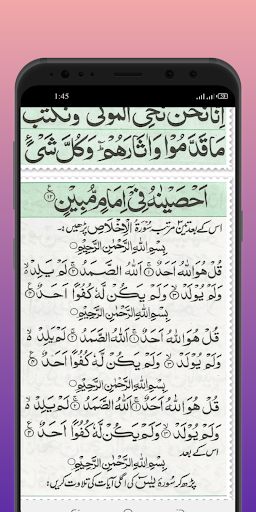 1:45
اِنَّا نَحْنُ نُحْیِ الْمَوْتٰی وَنَکْتُبُ
مَا قَدَّمُوْا وَاٰثَارَهُمْ ؔؕ وَکُلَّ شَیْءٍ
اَحْصَیْنٰهُ فِیْۤ اِمَامٍ مُّبِیْنٍ ﴿۱۲﴾
اس کے بعد تین مرتب سُوْرَۃُ الْاِخْلَاص پڑھیں:
بِسْمِ اللّٰهِ الرَّحْمٰنِ الرَّحِیْمِ
قُلْ هُوَ اللّٰهُ اَحَدٌ اَللّٰهُ الصَّمَدُ لَمْ یَلِدْ
وَلَمْ یُوْلَدْ وَلَمْ یَکُنْ لَّهٗ کُفُوًا اَحَدٌ
بِسْمِ اللّٰهِ الرَّحْمٰنِ الرَّحِیْمِ
قُلْ هُوَ اللّٰهُ اَحَدٌ اَللّٰهُ الصَّمَدُ لَمْ یَلِدْ
وَلَمْ یُوْلَدْ وَلَمْ یَکُنْ لَّهٗ کُفُوًا اَحَدٌ
بِسْمِ اللّٰهِ الرَّحْمٰنِ الرَّحِیْمِ
قُلْ هُوَ اللّٰهُ اَحَدٌ اَللّٰهُ الصَّمَدُ لَمْ یَلِدْ
وَلَمْ یُوْلَدْ وَلَمْ یَکُنْ لَّهٗ کُفُوًا اَحَدٌ
اس کے بعد
بِسْمِ اللّٰهِ الرَّحْمٰنِ الرَّحِیْمِ
پڑھ کر سُوْرَۃ یٰسٓ کی اگلی آیات کی تلاوت کریں: